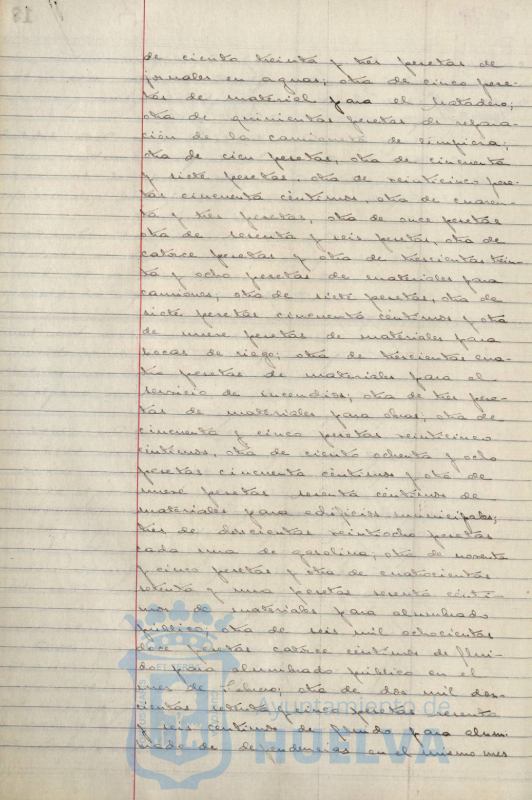 de ciento treinta y tres pesetas de
jornales en aguas; otra de cinco pese-
tas de material para el Matadero;
otra de quinientas pesetas de repara-
ción de la camioneta de limpieza;
otra de cien pesetas, otra de cincuenta
y siete pesetas, otra de veinticinco pese-
tas cincuenta céntimos, otra de cuaren-
ta y tres pesetas, otra de once pesetas
otra de sesenta y seis pesetas, otra de
catorce pesetas y otra de trescientas trein-
ta y ocho pesetas de materiales para
camiones; otra de siete pesetas, otra de
siete pesetas cincuenta céntimos y otra
de nueve pesetas de materiales para
bocas de riego; otra de trescientas cua-
tro pesetas de materiales para el
servicio de incendios; otra de tres pese-
tas de materiales para obras; otra de
cincuenta y cinco pesetas veinticinco
céntimos, otra de ciento ochenta y ocho
pesetas cincuenta céntimos y otra de
nueve pesetas sesenta céntimos de
materiales para edificios municipales;
tres de doscientas veintiocho pesetas
cada una de gasolina; otra de noventa
y cinco pesetas y otra de cuatrocientas
setenta y una pesetas sesenta cénti-
mos de materiales para alumbrado
público; otra de seis mil ochocientas
doce pesetas catorce céntimos de flui-
do para alumbrado público en el
mes de Febrero; otra de dos mil dos-
cientas setenta y cinco pesetas sesenta
y seis céntimos de fluido para alum-
brado de dependencias en el mismo mes
Ayuntamiento de
HUELVA